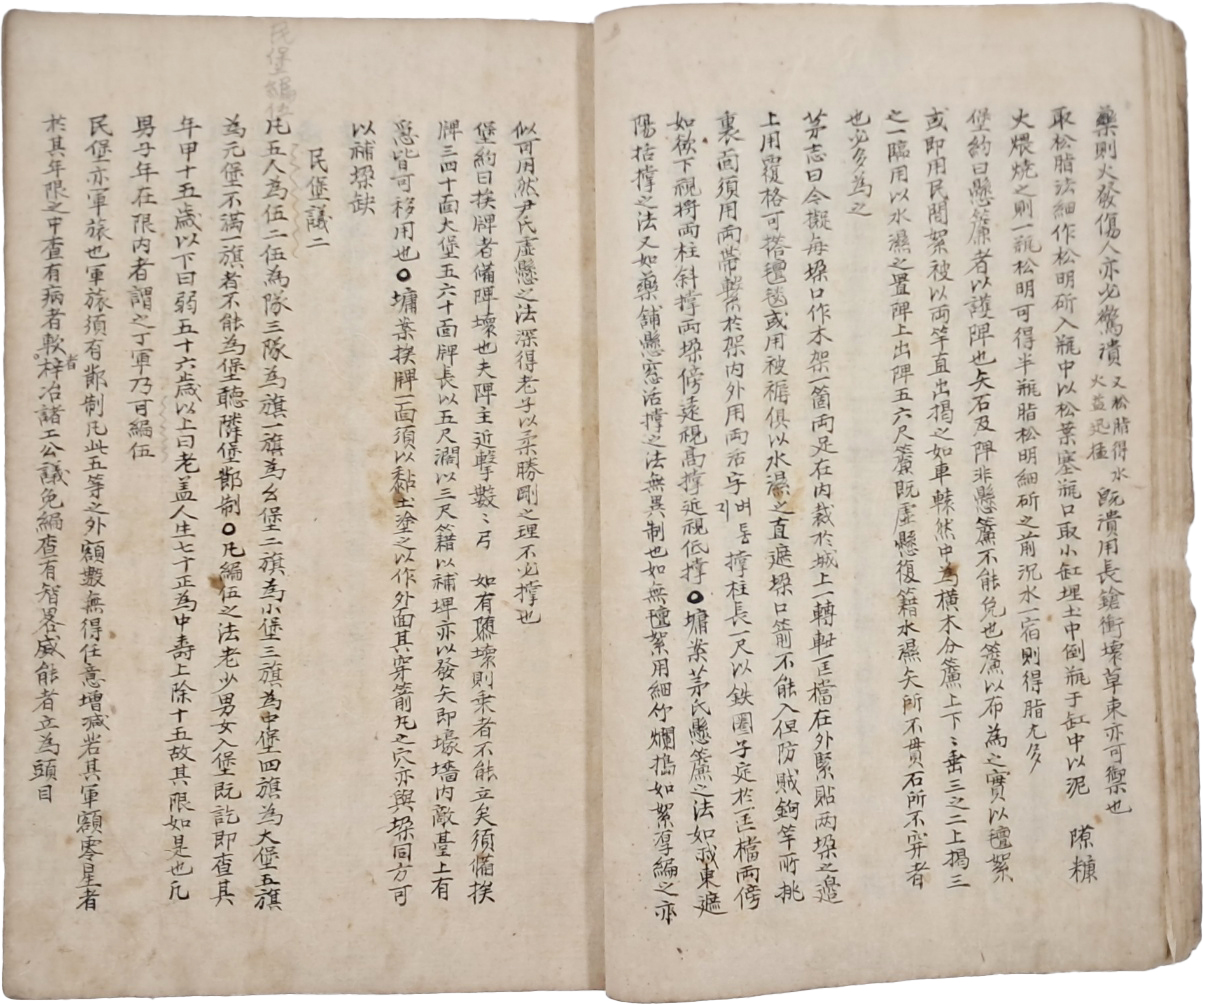 藥則火發傷人亦必驚潰 又松脂得水
火益迅挂 旣潰用長鎗衝壞草束亦可禦也
取松脂法細作松明斫入甁中以松葉塞甁口取小缸埋土中倒甁于缸中以泥 隙糠
火煨燒之則一甁松明可得半甁脂松明細斫之前沉水一宿則得脂尤多
堡約曰懸簾者以護陴也矢石及陴非懸簾不能免也簾以布為之實以氊絮
或即用民間絮被以両竿直出揭之如車轅然中為橫木分簾上下〻垂三之二上揭三
之一臨用以水濕之置陴上出陴五六尺簾旣虛懸復籍水濕矢所不貫石所不穿者
也必多為之
茅志曰今擬每垜口作木架一箇両足在内栽於城上一轉軸一匡檔在外緊貼两垜之邉
上用覆格可搭氊毯或用被褥俱以水濕之直遮垜口箭不能入但防賊鉤竿所挑
裏面須用両帶繫於架内外用両活字 버퉁기 撑柱長一尺以鉄圈子定於一匡檔両傍
如欲下視將両柱斜撑両垜傍遠視高撑近視低撑○墉案茅氏懸簾之法如我東遮
陽括撑之法又如藥舗懸窓活撑之法無異制也如無氊絮用細竹爛搗如絮厚編之亦
似可用然尹氏虛懸之法深得老子以柔勝剛之理不必撑也
堡約曰挨牌者備陴壞也夫陴主近擊數〻弓 如有隳壞則乘者不能立矣須備挨
牌三四十面大堡五六十面牌長以五尺濶以三尺籍以補埤亦以發矢即壕墻内敵臺上有
急皆可移用也○墉案挨牌一面須以黏土塗之以作外面其穿箭丸之穴亦與垜同方可
以補垜缺
民堡議二
民堡編伍
凡五人為伍二伍為隊三隊為旗一旗為幺堡二旗為小堡三旗為中堡四旗為大堡五旗
為元堡不滿一旗者不能為堡聽隣堡鄰制○凡編伍之法老少男女入堡旣訖即查其
年甲十五歲以下曰弱五十六歲以上曰老盖人生七十正為中壽上除十五故其限如是也凡
男子年在限内者謂之丁軍乃可編伍
民堡亦軍旅也軍旅須有鄰制凡此五等之外額數無得任意增減若其軍額零星者
於其年限之中查有病者軟者梓冶諸工公議免編查有智畧威能者立為頭目